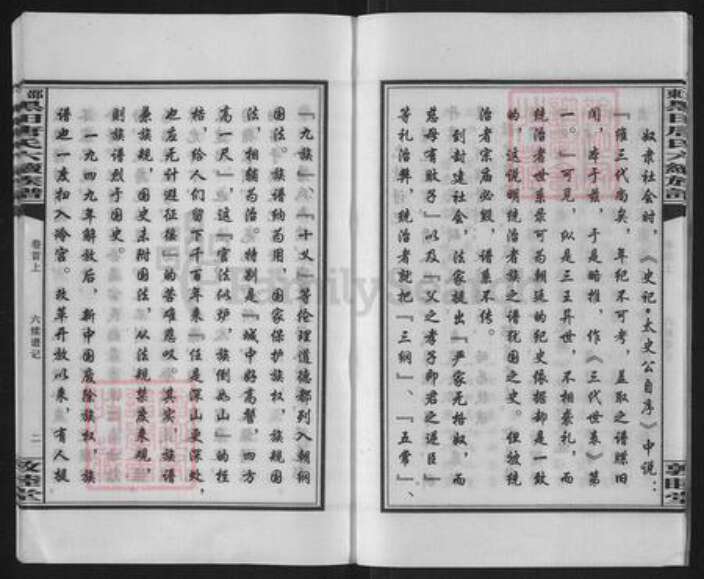 奴隶社会时，《史记·太史公自序》中说：
『维三代尚矣，年纪不可考，盖取之谱牒旧
闻，本于兹，于是略推，作《三代世表》第
一。』可见，纵是三王异世，不相袭礼，而
统治者世系景可为朝廷的纪史依据却是一致
的，这说明统治者族之谱犹国之史。但被统
治者宗庙必毁，谱系不传。
到封建社会，法家提出『严家无格奴，而
慈母有败子』以及『父之孝子即君之逆臣』
等礼治弊，统治者就把『三纲』、『五常』、
『九族』、『十义』等伦理道德都列入朝纲
国法。族谱纳为用，国家保护族权，族规国
法，相辅为治。特别是『城中好高髻，四方
高一尺』，这『官法似炉，族倒如山』的桎
梏，给人们留下千百年来『任是深山更深处，
也应无计避征徭』的苦难悲叹。其实，族谱
兼族规，国史未附国法，从法规禁废来观，
则族谱烈于国史。
一九四九年解放后，新中国废除族权，族
谱也一度扫入冷宫。改革开放以来，有人提
唐氏六续族谱
卷首上
六续遗记
二
敦睦堂